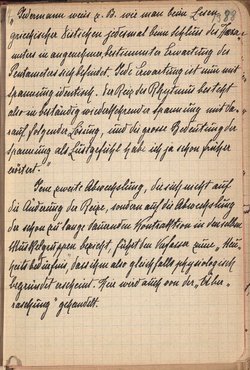 „Jedermann weiss z. B. wie man beim Lesen
griechischer Distichen jedesmal beim Schluss des Hexa-
meters in angenehmer bestimmter Erwartung des
Pentameters sich befindet. Jede Erwartung ist nun mit
Spannung identisch. Der Reiz des Rhythmus besteht
also in beständig wiederkehrender Spannung mit da-
rauf folgender Lösung, und die grosse Bedeutung der
Spannung als Lustgefühl habe ich ja schon früher
erörtert.
Jene zweite Abwechselung, die sich nicht auf
die Änderung der Reize, sondern auf die Abwechslung
der schon zu lange dauernden Kontraktion in denselben
Muskelgruppen bezieht, führt den Verfasser zum „Neu-
heitsbedürfnis", das ihm also gleichfalls physiologisch
begründet erscheint. Hier wird auch von der „Über-
raschung" gehandelt.